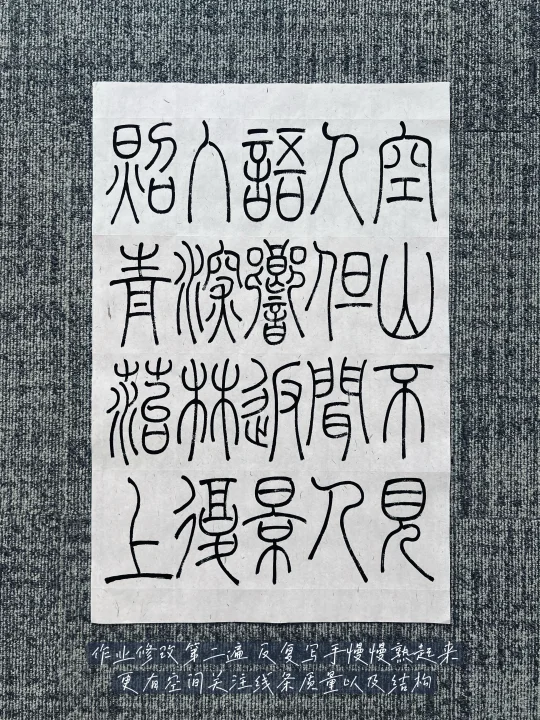 空山不見
人但聞人
語響返景
入深林復
照青菭上
作业修改第二遍 反复写手慢慢熟起来
更有空间关注线条质量以及结构